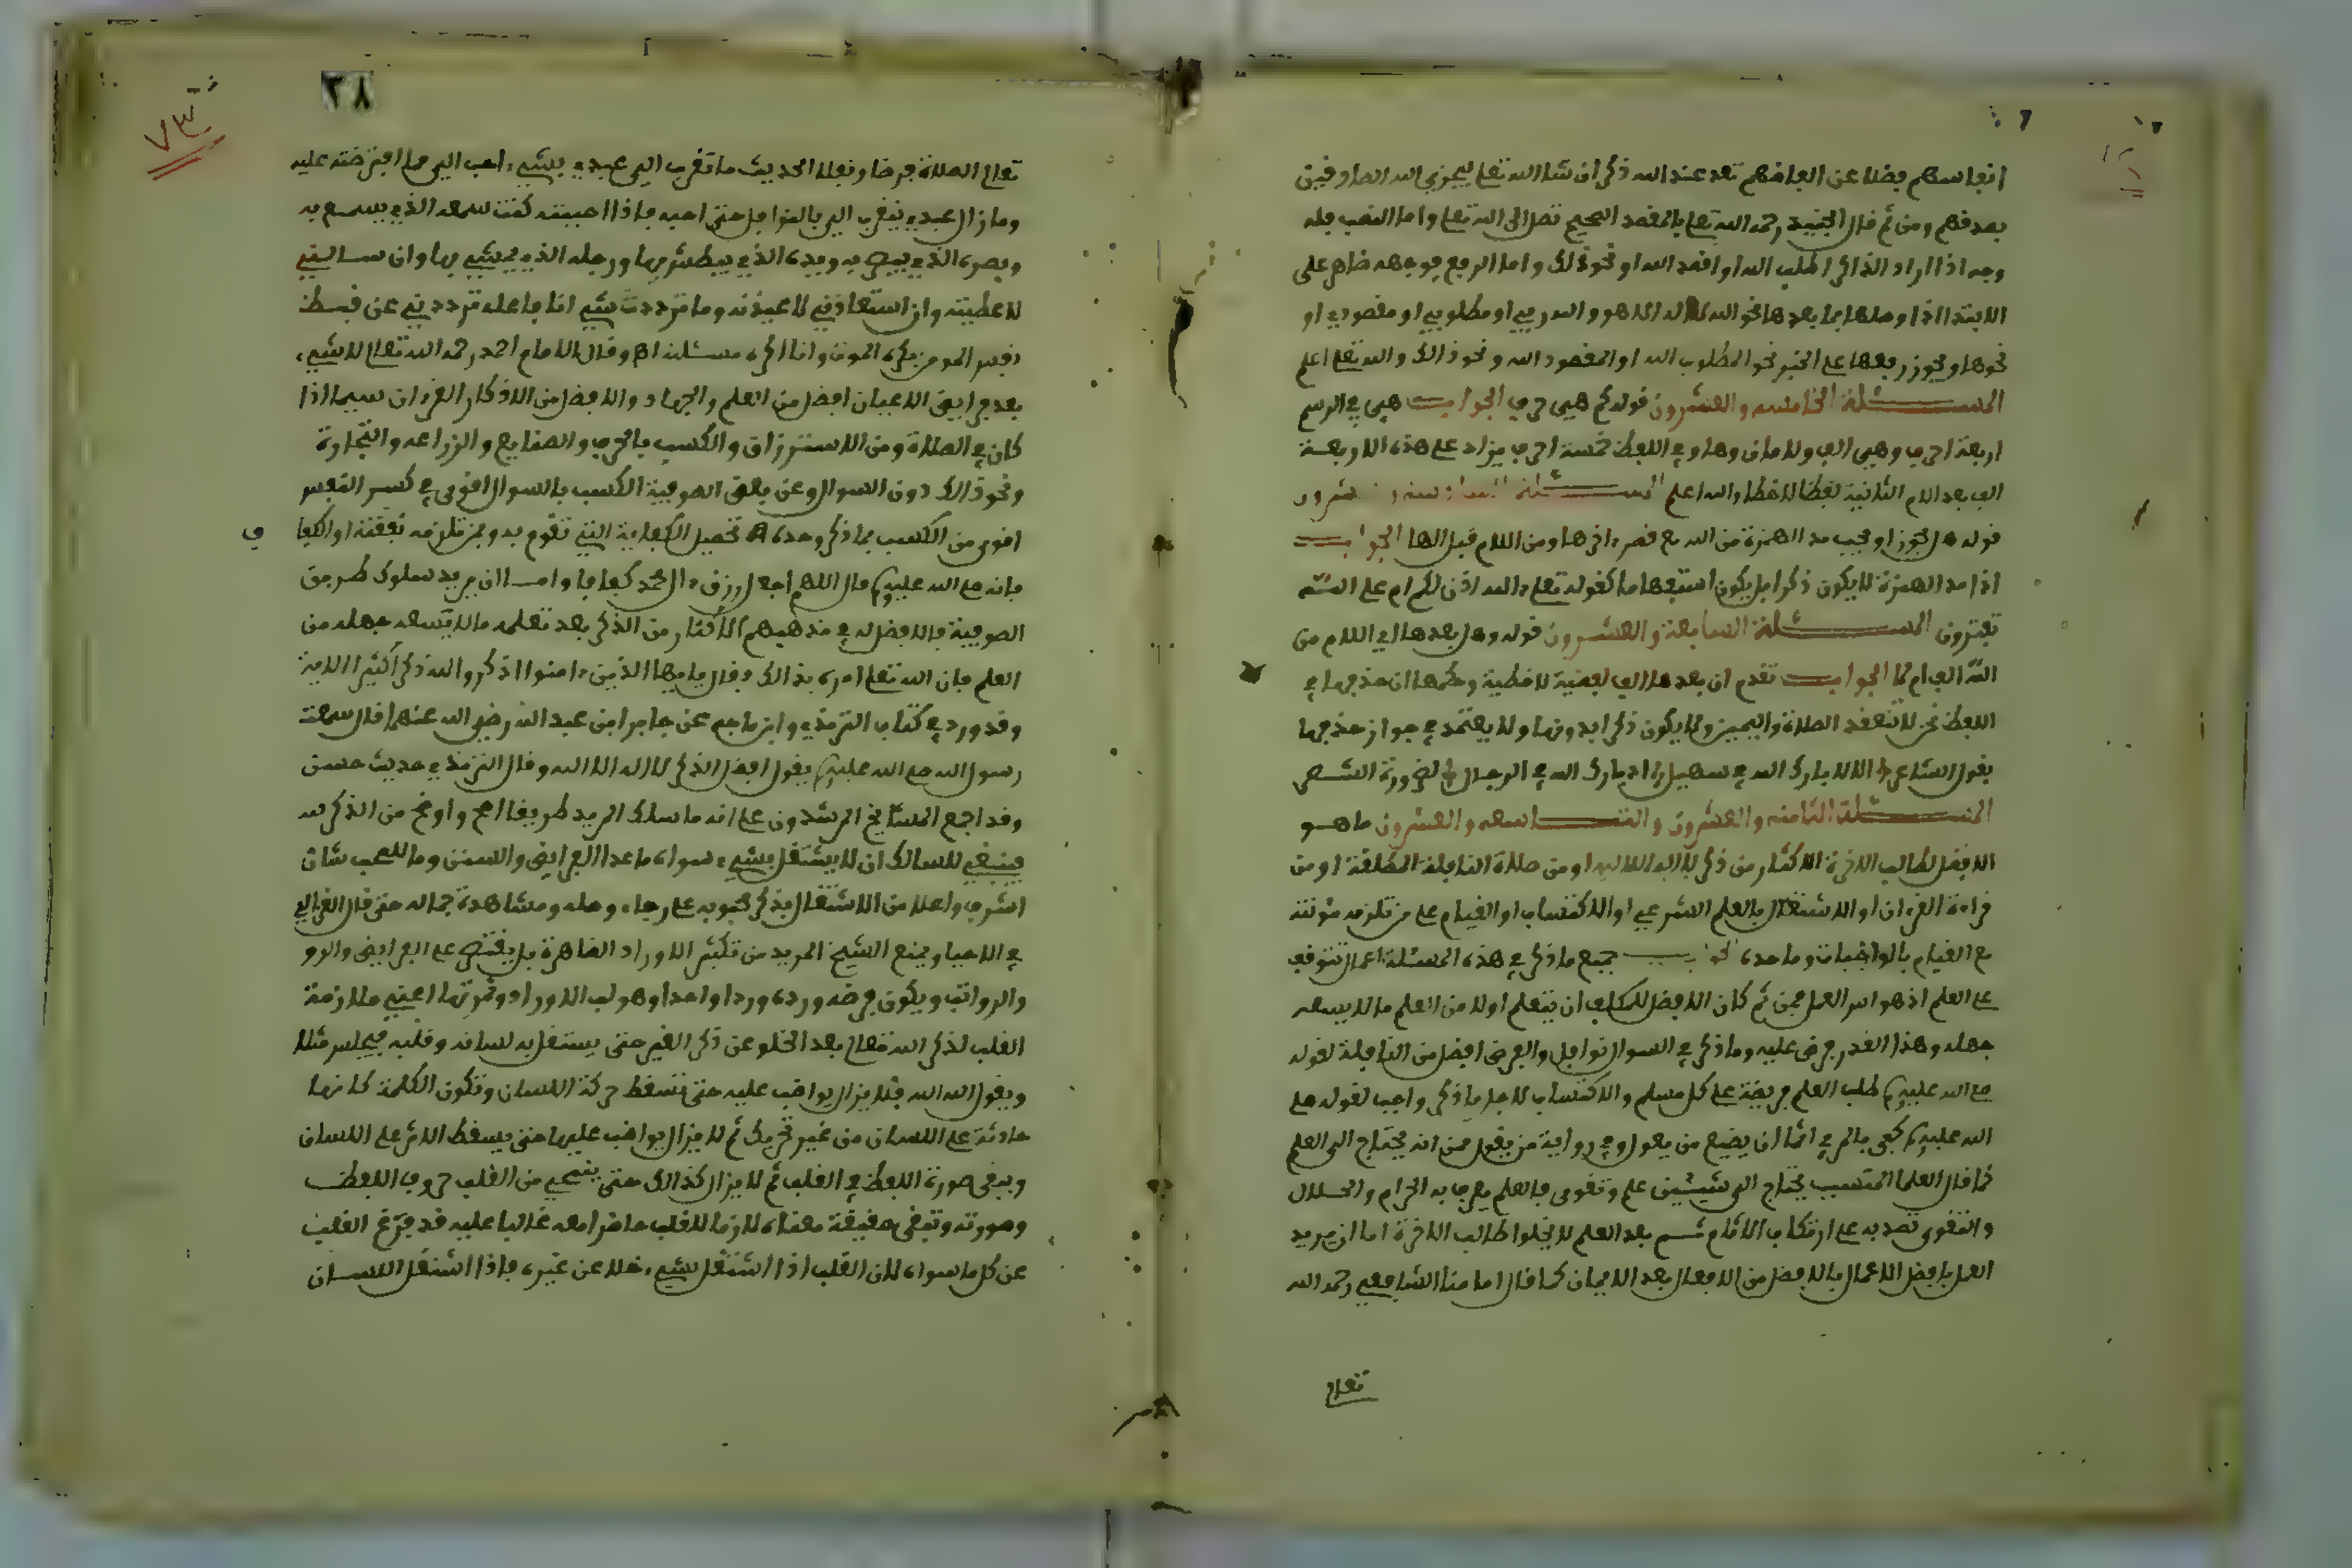 انفاسهم فضلا عن الفاظهم تعد عند الله ذكرا ان شا الله تعلى ليجزي الله الصادقين
بصدقهم ومن ثم قال الجنيد رحمه الله تعلى بالمقصد الصحيح تصل الى الله تعلى واما النصب فله
وجه اذا اراد الذاكر اطلب الله او اقصد الله او نحو ذلك واما الرفع فوجهه ظاهر على
الابتدا اذا وصلها بما بعدها نحو الله لا اله الا هو والله ربي او مطلوبي او مقصودي او
نحوها ويجوز رفعها على الخبر نحو المطلوب الله او المقصود الله ونحو ذالك والله تعلى اعلم
المسئلة الخامسه والعشرون قوله كم هي حرف الجواب هي في الرسم
اربعة احرف وهي الف ولامان وها وفي اللفظ خمسة احرف يزاد على هذه الاربعة
الف بعد الام الثانية لفظا لا خطا والله اعلم المسئلة السادسة والعشرون
قوله هل يجوز او يجب مد الهمزة من الله مع قصر اخرها ومن اللام قبل الها الجواب
اذا مد الهمزة لا يكون ذكرا بل يكون استفهاما كقوله تعلى ءالله اذن لكم ام على الله
تفترون المسئلة السابعة والعشرون قوله وهل بعدها اي اللام من
الله الف ام لا الجواب تقدم ان بعدها الف لفظية لا خطية وحكمها ان حذفها في
اللفظ لحن لا تنعقد الصلاة واليمين ولا يكون ذكرا بدونها ولا يعتمد في جواز حذفها
بقول الشاعر الا لا بارك الله في سهيل اذا بارك الله في الرجال لضرورة الشعر
المسئلة الثامنه والعشرون والتاسعه والعشرون ما هو
الافضل لطالب الاخرة الاكثار من ذكر لا اله الا الله او من صلاة النافلة المطلقة او من
قراءة القرءان او الاشتغال بالعلم الشرعي او الاكتساب او القيام على من تلزمه مئونته
مع القيام بالواجبات وما حده الجواب جميع ما ذكر في هذه المسئلة اعمال تتوقف
على العلم اذ هو اس العمل فمن ثم كان الافضل للمكلف ان يتعلم اولا من العلم ما لا يسعه
جهله وهذا القدر فرض عليه وما ذكر في السوال نوافل والفرض افضل من النافلة لقوله
صلى الله عليه وسلم طلب العلم فريضة على كل مسلم والاكتساب لاجل ما ذكر واجب لقوله صلى
الله عليه وسلم كفى بالمرء اثما ان يضيع من يعول وفي رواية من يقول فمن انه يحتاج الى العلم
كما قال العلما المتسبب يحتاج الى شيئين علم وتقوى فالعلم يعرف به الحرام والحلال
والتقوى تصد به على ارتكاب الاثام ثم بعد العلم لا يخلوا طالب الاخرة اما ان يريد
العمل بافضل الاعمال بالافضل من الافعال بعد الايمان كما قال امامنا الشافعي رحمه الله
تعلى
٣٨
٧٣
تعلى الصلاة فرضا ونفلا الحديث ما تقرب الي عبدي بشيء احب الي مما افترضته عليه
وما زال عبدي يتقرب الي بالنوافل حتى احبه فاذا احببته كنت سمعه الذي يسمع به
وبصره الذي يبصر به ويده الذي يبطش بها ورجله الذي يمشي بها وان سالني
لاعطينه وان استعاذني لاعيذنه وما ترددت بشي انا فاعله ترددي عن قبض
نفس المومن يكره الموت وانا اكره مسئلته اه وقال الامام احمد رحمه الله تعلى لا شيء
بعد فرايض الاعيان افضل من العلم والجهاد والافضل من الاذكار القرءان سيما اذا
كان في الصلاة ومن الاسترزاق والكسب بالحرف والصنايع والزراعه والتجارة
ونحو ذالك دون السوال وعن بعض الصوفية الكسب بالسوال اقوى في كسر النفس
اقوى من الكسب بما ذكر وحده تحصيل الكفاية التي تقوم به وبمن تلزمه نفقته او الكفا ف
فانه صلى الله عليه وسلم قال اللهم اجعل رزق ءال محمد كفافا واما ان يريد سلوك طريق
الصوفية فالافضل له في مذهبهم الاكثار من الذكر بعد تعلمه ما لا يسعه جهله من
العلم فان الله تعلى امره بذالك وقال يا ايها الذين ءامنوا اذكروا الله ذكرا كثيرا الاية
وقد ورد في كتاب الترمذي وابن ماجه عن جابر ابن عبد الله رضي الله عنهما قال سمعت
رسول الله صلى الله عليه وسلم يقول افضل الذكر لا اله الا الله وقال الترمذي حديث حسن
وقد اجمع المشايخ المرشدون على انه ما سلك المريد طريقا اصح واوضح من الذكر لله
فينبغي للسالك ان لا يشتغل بشيء سواه ما عدا الفرايض والسنن وما للمحب شان
اشرف واعلا من الاشتغال بذكر محبوبه على رجاء وصله ومشاهدة جماله حتى قال الغزالي
في الاحيا ويمنع الشيخ المريد من تكثير الاوراد الظاهرة بل يقتصر على الفرايض والرو
والرواتب ويكون فرضه ورده وردا واحدا وهو لب الاوراد وثمرتها اعني ملازمة
القلب لذكر الله تعلى بعد الخلو عن ذكر الغير حتى يستغل به لسانه وقلبه فيجلس مثلا
ويقول الله الله فلا يزال يواظب عليه حتى تسقط حركة اللسان وتكون الكلمة كانها
جارية على اللسان من غير تحريك ثم لا يزال يواظب عليها حتى يسقط الاثر على اللسان
ويبقى صورة اللفظ في القلب ثم لا يزال كذالك حتى ينمحي من القلب حروف اللفظ
وصورته وتبقى حقيقة معناه لازما للقلب حاضرا معه غالبا عليه قد فرغ القلب
عن كل ما سواه لان القلب اذا اشتغل بشيء خلا عن غيره فاذا اشتغل اللسان